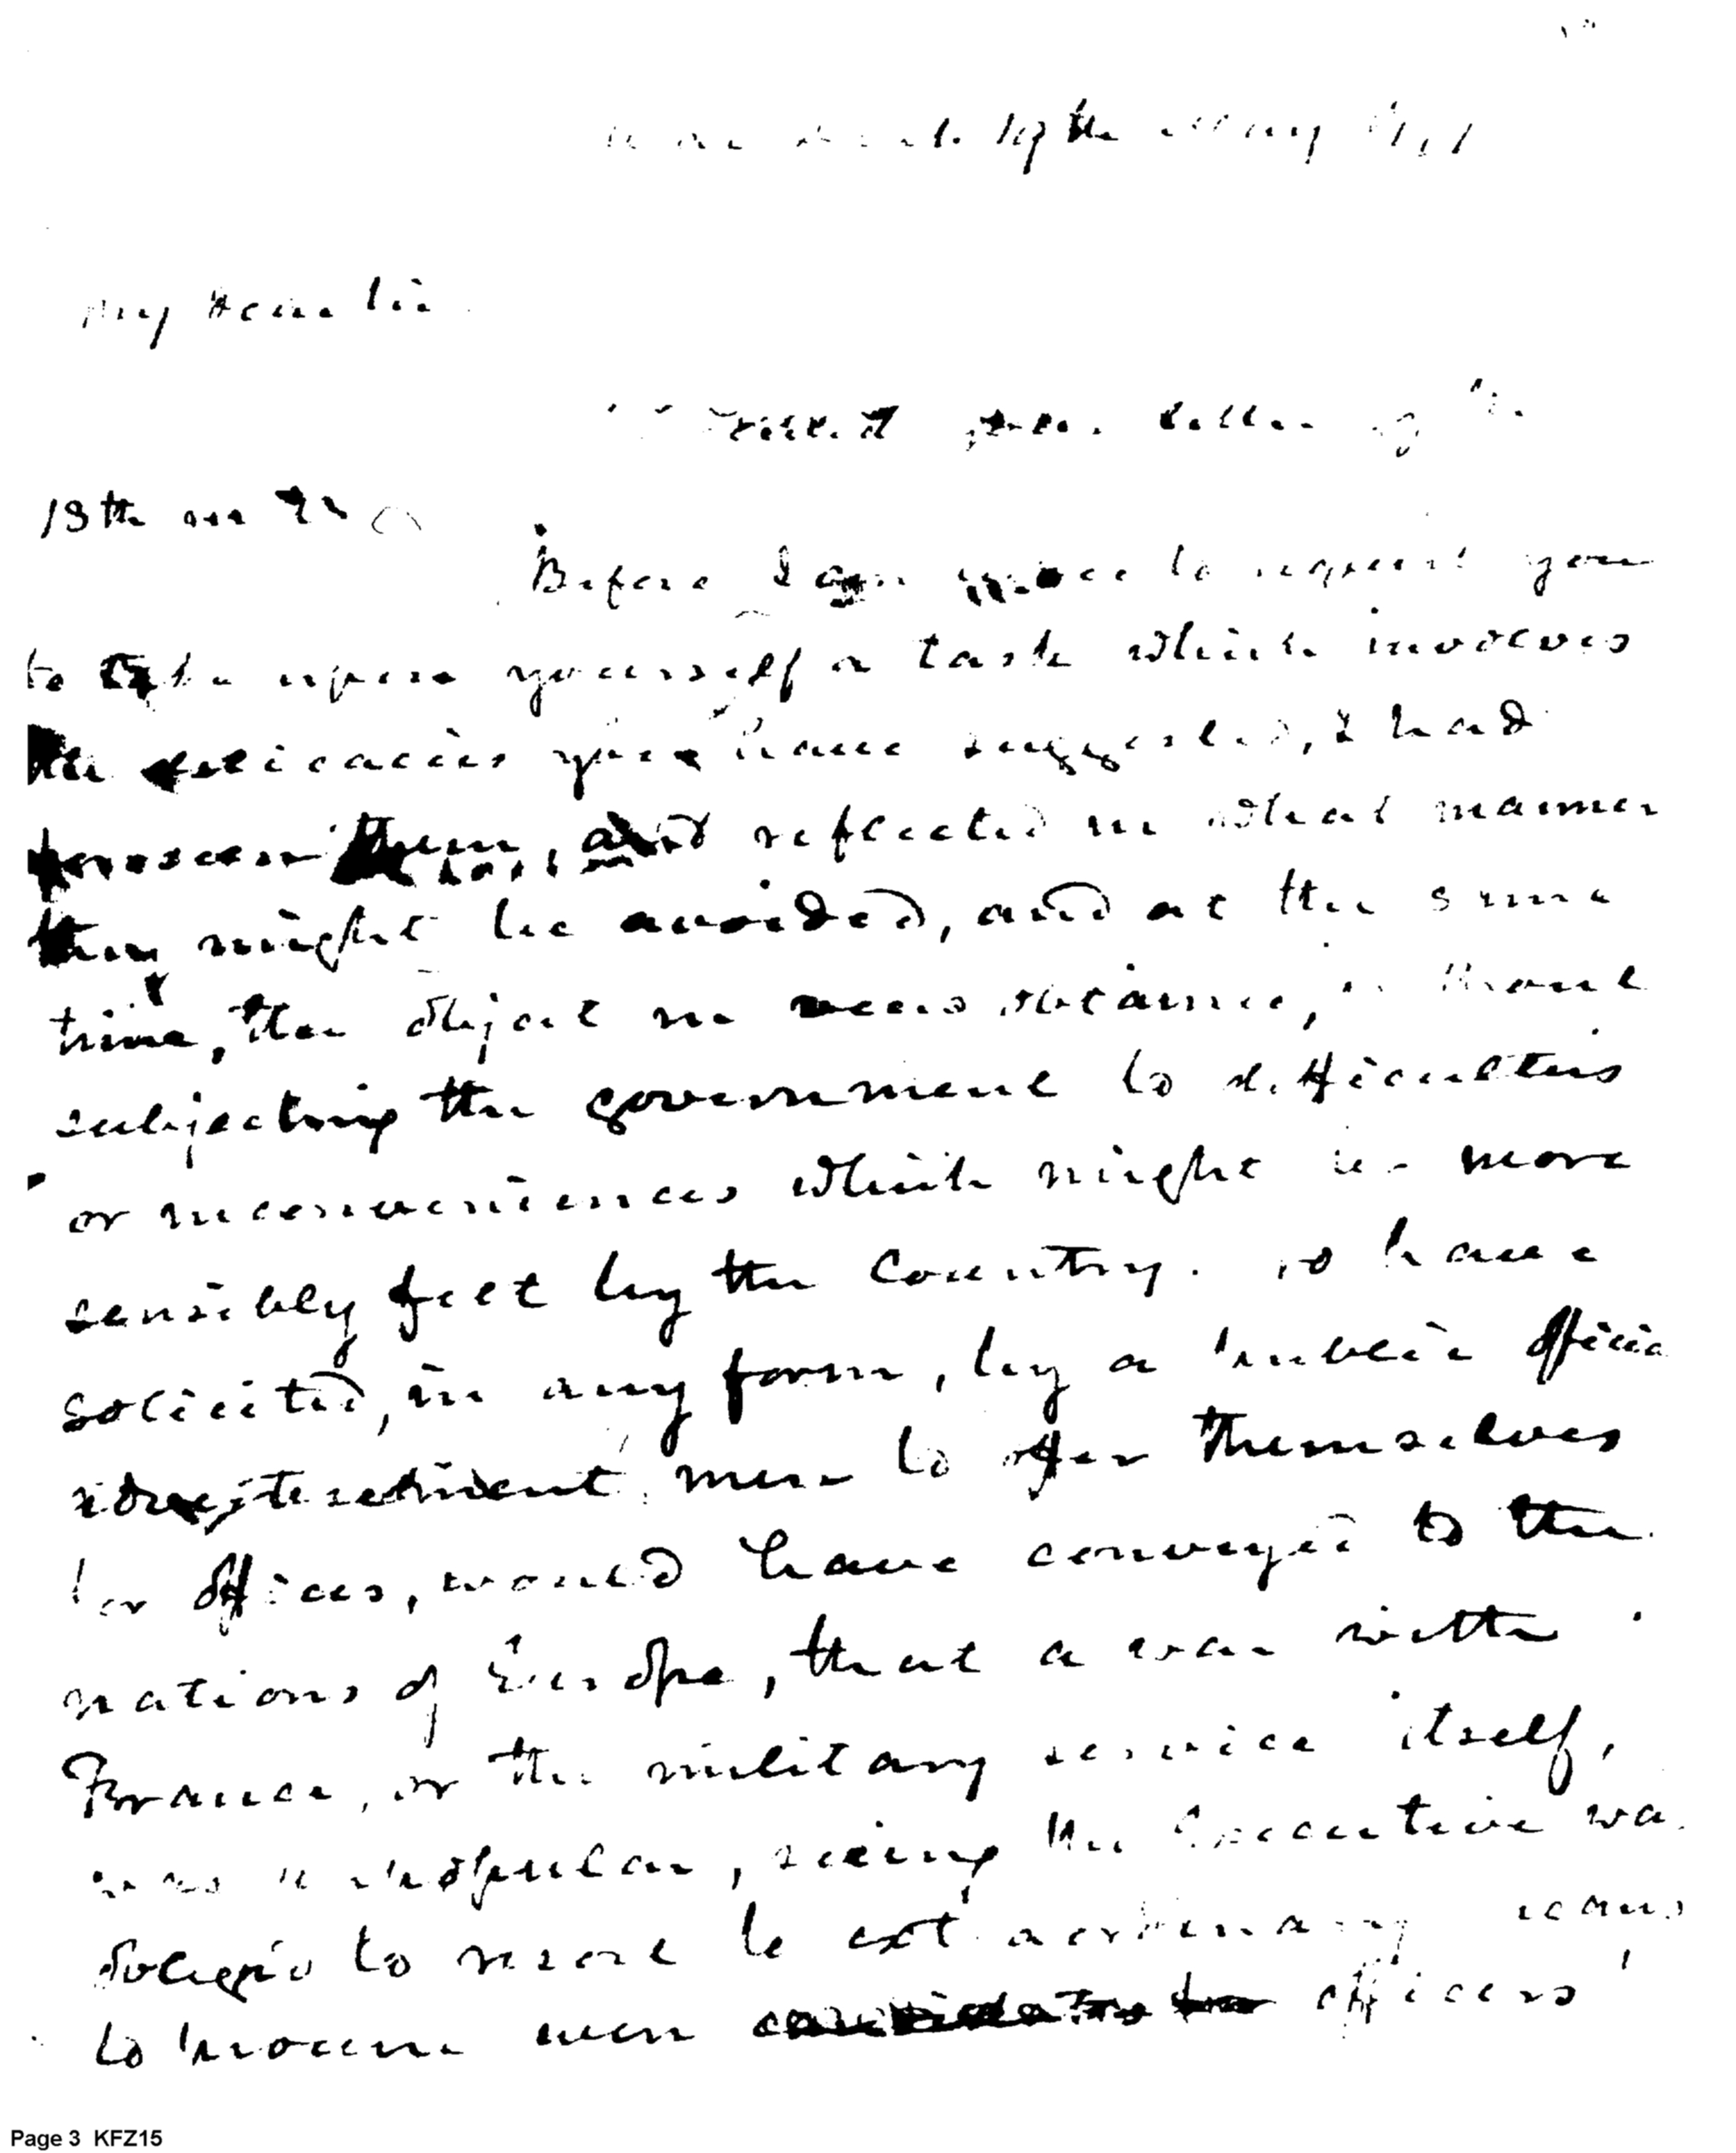 19th May
My dear Sir
your letter of
13th
Before I to request you
to take upon yourself a task which involves
the delicacies you have suggested, I had
foreseen them, and reflected in what manner
they might be avoided, and at the same
time, the object in view obtained, without
subjecting the government to difficulties
or inconveniences which might be more
sensibly felt by the Country. To have
solicited, in any form, by a public
advertisement, men to offer themselves
for offices, would have conveyed to the
nations of Europe, that a war with
France, or the military service itself,
was unpopular, seeing the Executive was
obliged to resort to extraordinary means
to procure even officers
Page 3 KFZ15